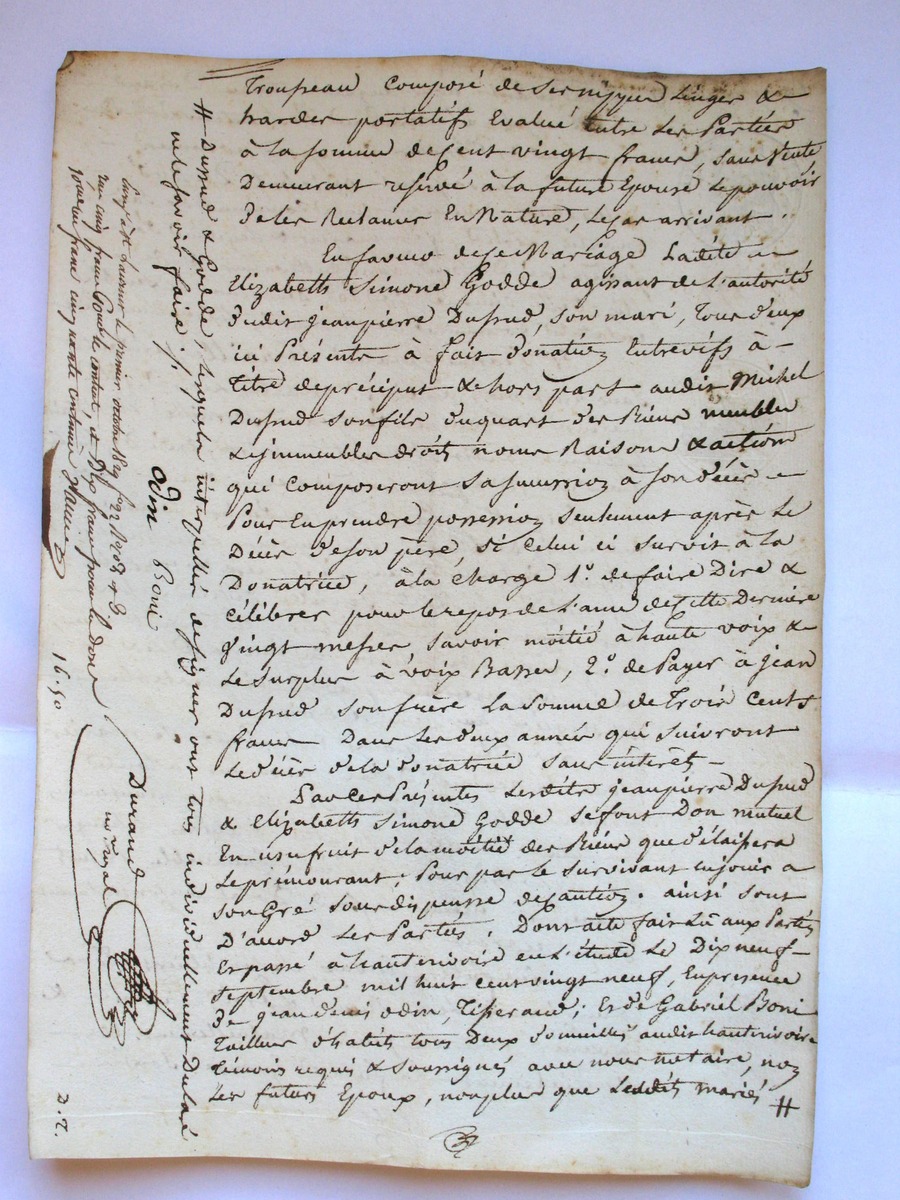 Trousseau composé de ses nippes Linges &
hardes portatifs Evalué Entre Les Parties
à la somme de Cent vingt francs, sans Vente
Demeurant réservé à la future Epouse Le pouvoir
de les Réclamer En Nature, Le cas arrivant.
En faveur de ce Mariage Ladite
Elizabeth Simone Godde agissant de L'autorité
dudit Jeanpierre Dussud, son mari, Tous deux
ici Présents à fait donation Entrevifs à
Titre de préciput & hors part audit Michel
Dussud son fils du quart des Biens meubles
& immeubles droits noms Raisons & actions
qui Composeront Sa succession à son décès
Pour En prendre possession seulement après Le
Décès de son père, si Celui ci survit à La
Donatrice, à La Charge 1.º de faire Dire &
Célébrer pour le repos de L'ame de Cette Dernière
vingt messes, savoir moitié à haute voix &
Le surplus à voix Basse, 2.º de Payer à Jean
Dussud son frère La somme de Trois Cents
francs Dans Les deux années qui suivront
Le décès de la donatrice sans intérêts
Par Ces Présentes Lesdits Jeanpierre Dussud
& Elizabeth Simone Godde se font Don mutuel
En usufruit de la moitié des Biens que délaissera
Le prémourant, Pour par le survivant en jouir a
son Gré sous dispense de Caution. ainsi sont
D'accord Les Parties. Dont acte fait Lû aux Parties
Et passé à hauterivoire en L'étude Le Dix neuf
Septembre mil huit cent vingt neuf, En présence
De jean denis odin, Tisserand; Et de Gabriel Boni
Tailleur d'habits tous Deux domiciliés audit hauterivoire
Témoins requis & soussignés avec nous notaire, non
Les futurs Epoux, non plus que Lesdits mariés #
# Dussud & Godde, Lesquels interpellés de signer ont tous individuellement Déclaré
ne le savoir faire ./.
odin Boni
Durand
no. royal
Enregistré à St Laurent le premier octobre 1829
cinq francs Pour le contrat, et Dix francs pour le don
dixième un franc cinquante centimes
16.50
D.T.